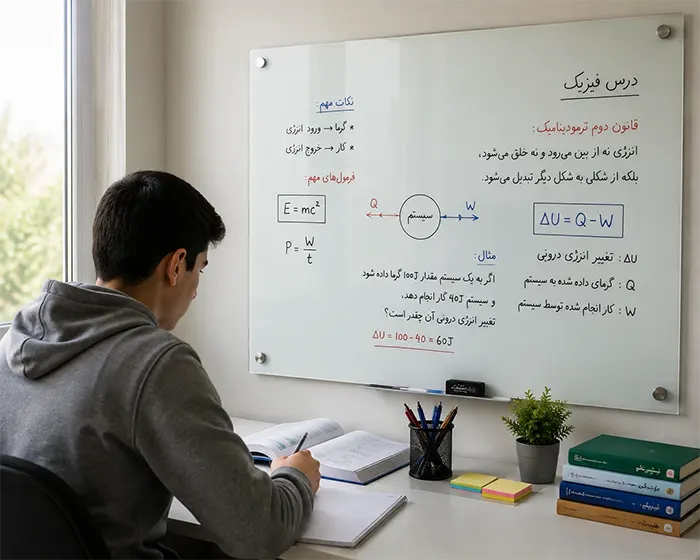 درس فیزیک
قانون دوم ترمودینامیک:
انرژی نه از بین می‌رود و نه خلق می‌شود،
بلکه از شکلی به شکل دیگر تبدیل می‌شود.
ΔU = Q - W
ΔU : تغییر انرژی درونی
Q : گرمای داده شده به سیستم
W : کار انجام شده توسط سیستم
نکات مهم:
* گرما → ورود انرژی
* کار → خروج انرژی
فرمول‌های مهم:
E = mc²
P = W/t
Q
سیستم
W
مثال:
اگر به یک سیستم مقدار 100J گرما داده شود
و سیستم 40J کار انجام دهد،
تغییر انرژی درونی آن چقدر است؟
ΔU = 100 - 40 = 60J